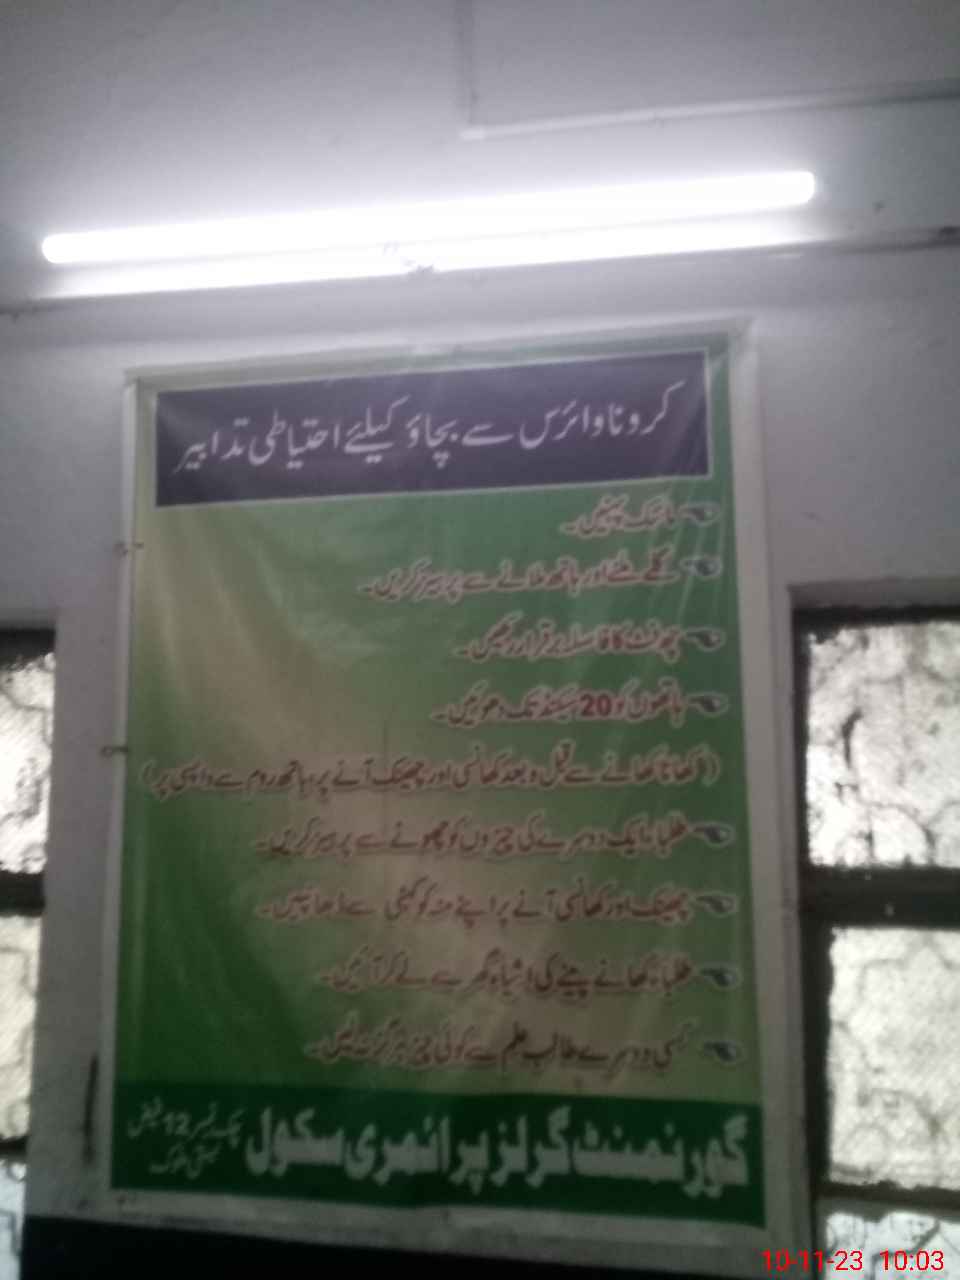 کرونا وائرس سے بچاؤ کیلئے احتیاطی تدابیر
ماسک پہنیں۔
گلے ملنے اور ہاتھ ملانے سے پرہیز کریں۔
چھ فٹ کا فاصلہ برقرار رکھیں۔
ہاتھوں کو 20 سیکنڈ تک دھوئیں۔
(کھانا کھانے سے قبل و بعد کھانسی اور چھینک آنے پر باتھ روم سے واپسی پر)
طلباء ایک دوسرے کی چیزوں کو چھونے سے پرہیز کریں۔
چھینک اور کھانسی آنے پر اپنے منہ کو کہنی سے ڈھانپیں۔
طلباء کھانے پینے کی اشیاء گھر سے لے کر آئیں۔
کسی دوسرے طالب علم سے کوئی چیز ہرگز نہ لیں۔
گورنمنٹ گرلز پرائمری سکول چک نمبر 12 فیض
بستی ملوک
10-11-23 10:03